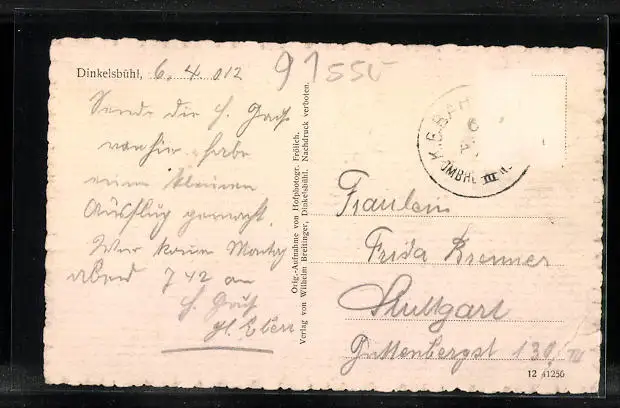 Dinkelsbühl, 6. 4. 012
Sende dir h. Gruß
von hier habe
einen kleinen
Ausflug gemacht.
Montag
abend 7 42 an
h. Gruß
Orig.-Aufnahme von Hofphotogr. Frölich.
Verlag von Wilhelm Breitinger, Dinkelsbühl. Nachdruck verboten.
K.B.BAH
6
III
Fräulein
Frida Brenner
Stuttgart
Guttenbergst 130/III
12 41256